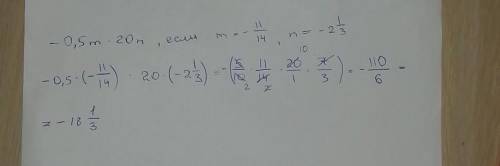 -0,5m · 20n, если m = -11/14, n = -2 1/3
-0,5 · (-11/14) · 20 · (-2 1/3) = -(5/10 2 · 11/14 2 · 20 10/1 · 7/3) = -110/6 =
= -18 1/3